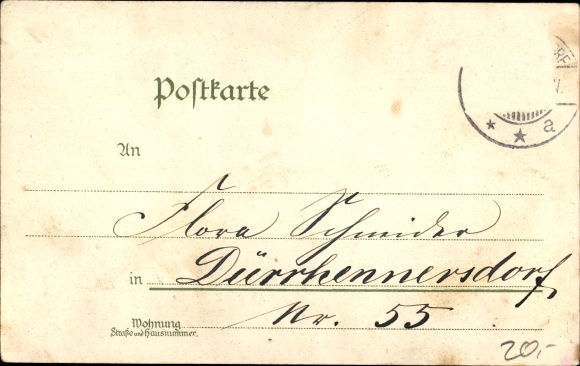 Postkarte
An
Flora Schneider
in Dürrhennersdorf
Wohnung Nr. 55
Straße und Hausnummer.
a
20,-